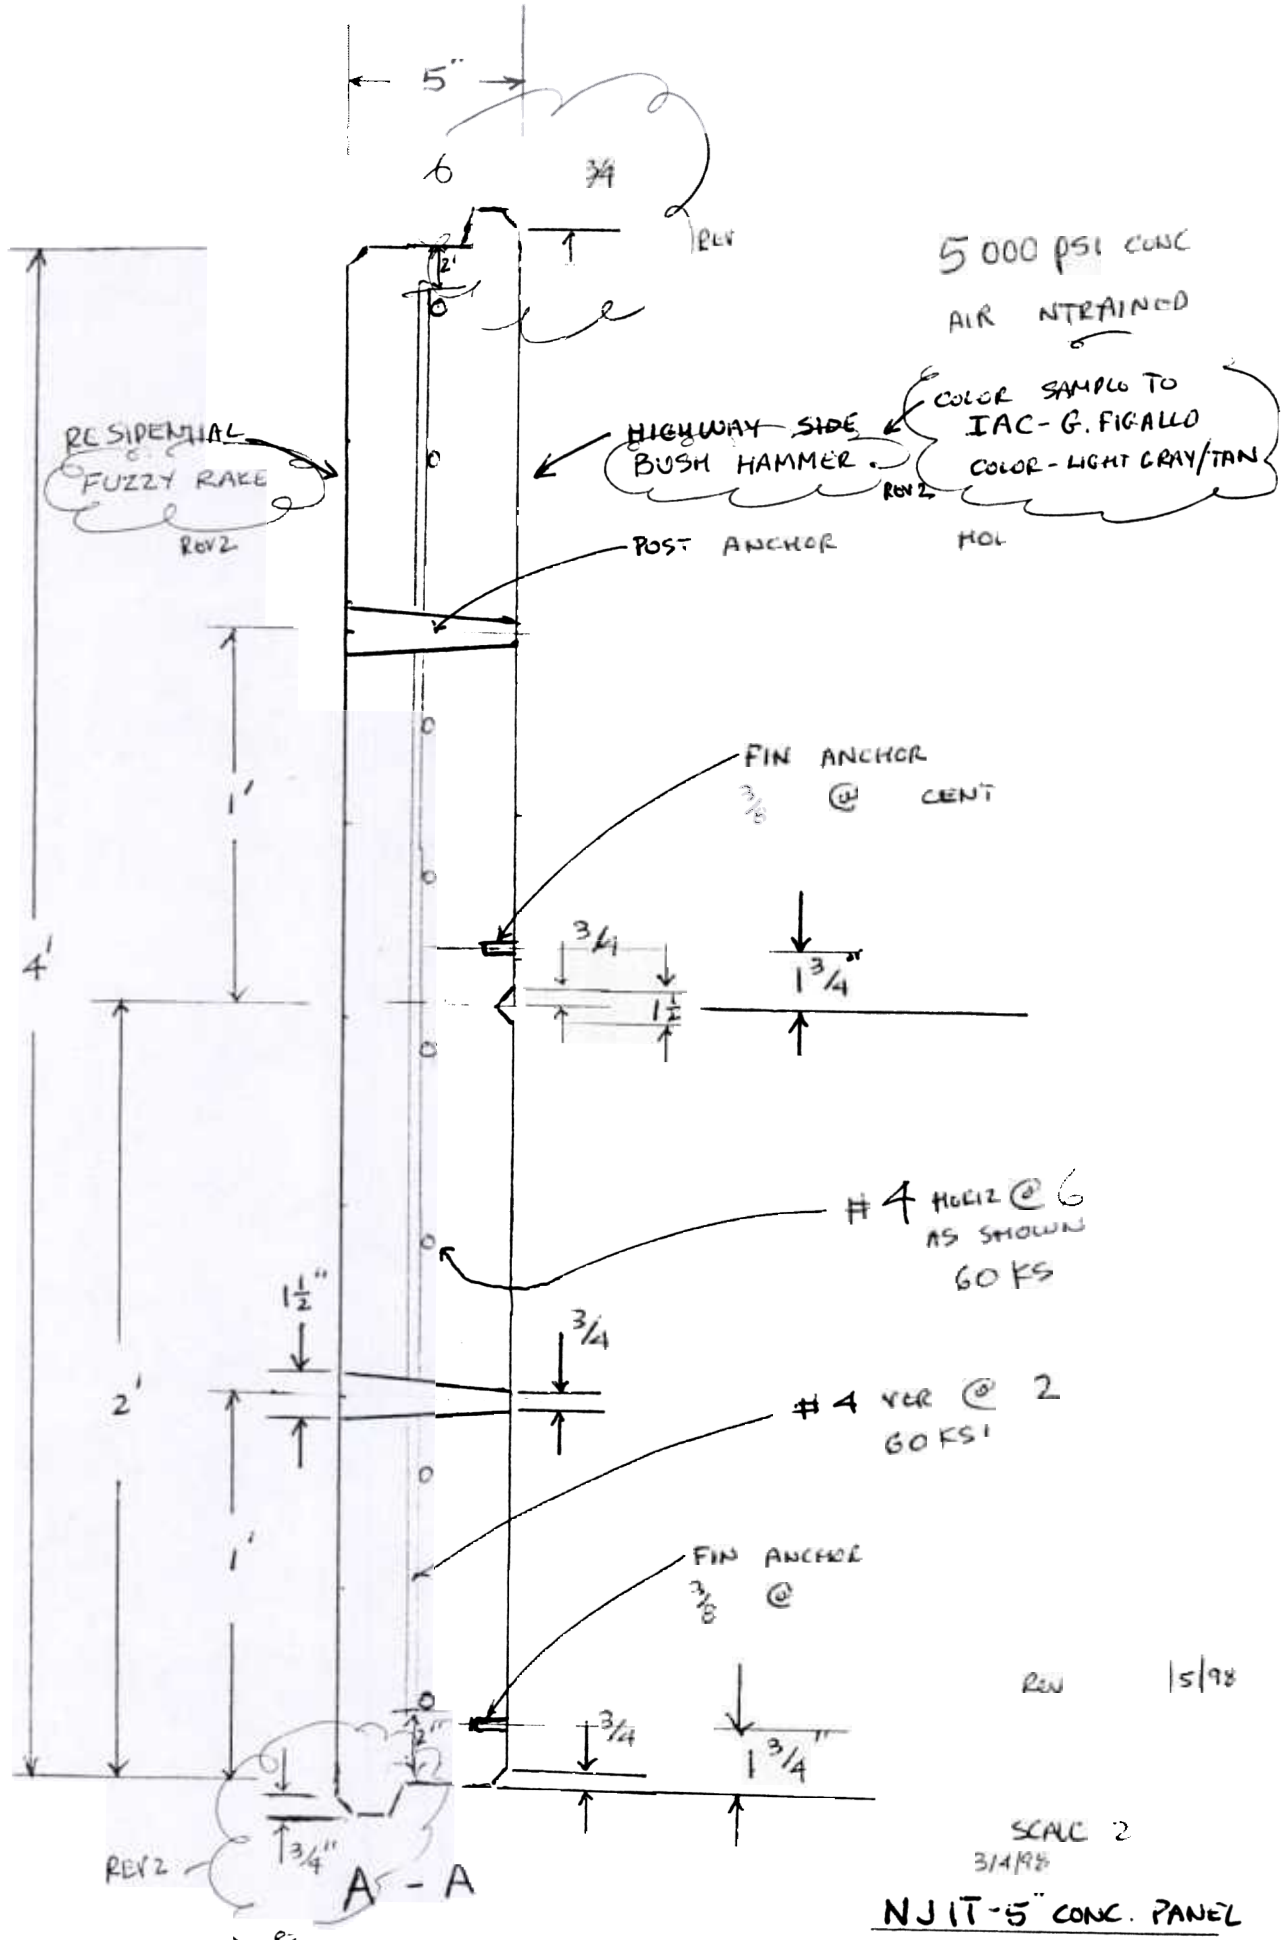 5"
6 3/4
REV
2'
5000 PSI CONC
AIR NTRAINED
COLOR SAMPLE TO
IAC-G. FIGALLO
COLOR-LIGHT GRAY/TAN
RESIDENTIAL
FUZZY RAKE
REV2
HIGHWAY SIDE
BUSH HAMMER.
REV2
POST ANCHOR HOL
1'
FIN ANCHOR
3/8 @ CENT
4'
3/4
1 1/2
1 3/4"
#4 HORIZ @ 6
AS SHOWN
60 KS
1 1/2"
3/4
2'
#4 VER @ 2
60 KSI
1'
FIN ANCHOR
3/8 @
REV 15/98
2"
3/4
1 3/4"
3/4"
REV2
A - A
SCALE 2
3/4/98
NJIT-5" CONC. PANEL